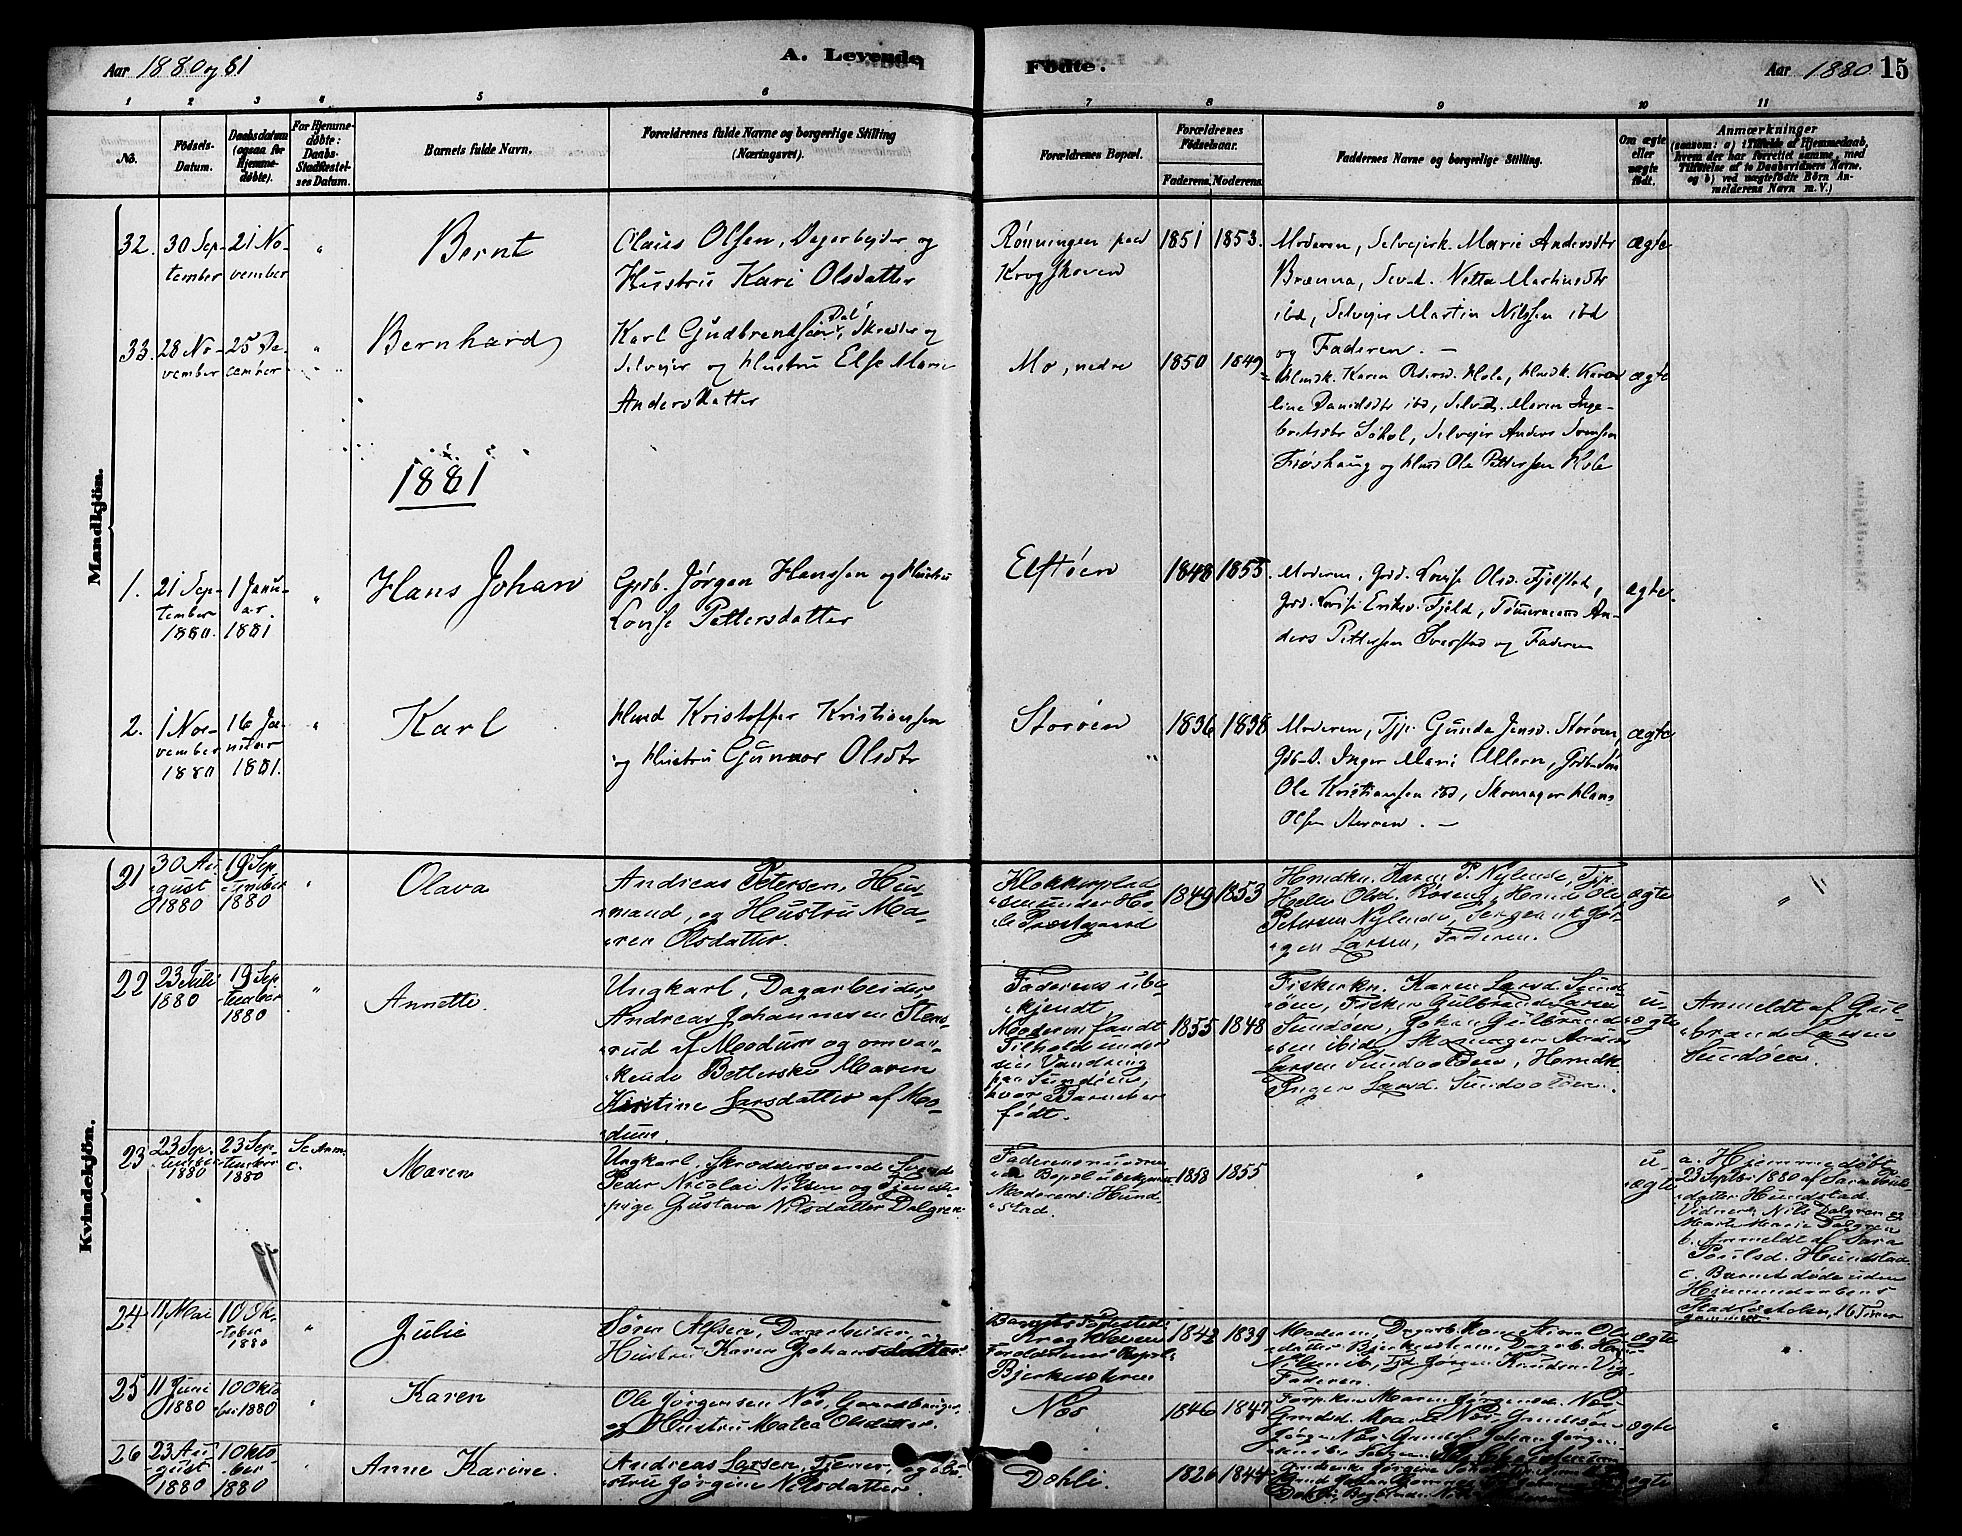 Aar 1880 og 81
A. Levende Fødte.
Aar 1880 15
1 2 3 4 5 6 7 8 9 10 11
No.
Fødsels-
Datum.
Daabsdatum
(ogsaa for
Hjemme-
døbte).
For Hjemme-
døbte:
Daabs-
Stadfæstel-
ses Datum.
Barnets fulde Navn.
Forældrenes fulde Navne og borgerlige Stilling
(Næringsvei).
Forældrenes Bopæl.
Forældrenes
Fødselsaar.
Faderens. Moderens.
Faddernes Navne og borgerlige Stilling.
Om ægte
eller
uægte
født.
Anmærkninger
(saasom: a) i Tilfælde af Hjemmedaab,
hvem der har forrettet samme, med
Tilføielse af to Daabsvidners Navne.
og b) ved uægtefødte Børn An-
melderens Navn m. V.)
Mandkjön.
32.
30 Sep-
tember
21 No-
vember
"
Bernt
Claus Olsen, Dagarbejder og
Hustru Kari Olsdatter
Rønningen ved
Krogskoven
1851 1853.
Moderen, Selvejerk. Marie Andersdtr
Brænna, Sevd. Netta Martinsdtr
ibd, Selvejer Martin Nilsen ibd
og Faderen. —
ægte
33.
28 No-
vember
25 De-
cember
"
Bernhard
Karl Gudbrendsen Dal, Skredder og
Selvejer og Hustru Else Marie
Andersdatter
Mo, nedre
1850 1849
Hmdk. Karen Pedersd. Hole, Hmdk. Karo-
line Danielsdtr ibd, Selvd. Maren Inge-
bretsdtr Søhol, Selvejer Anders Svensen
Frøshaug og Hmd Ole Pettersen Hole
ægte
1881
1.
21 Sep-
tember
1880.
1 Janu-
ar
1881
"
Hans Johan
Grdb. Jørgen Hanssen og Hustru
Lovise Pettersdatter
Elstøen
1848 1855
Moderen, Grdd. Lovise Olsd. Fjelstad,
Grdd. Lovise Eriksd. Fjeld, Tømermand An-
ders Pettersen Sverstad og Faderen
ægte
2.
1 No-
vember
1880
16 Ja-
nuar
1881.
"
Karl
Hmd Kristoffer Kristiansen
og Hustru Gunnor Olsdtr
Storøen
"
1836 1838
Moderen, Tjp. Gunda Jensd. Storøen,
Gdb.D. Inger Marie Ullern, Grdb.søn
Ole Kristiansen ibd, Skomager Hans
Olsen Storøen. —
ægte
Kvindekjön.
21
30 Au-
gust
1880
19 Sep
tember
1880
"
Olava
Andreas Petersen, Hus-
mand, og Hustru Ma-
ren Olsdatter.
Klokkerplad-
sen under Ho-
le Præstegaard
1849 1853
Hmdkn. Karen P. Nylende, Tjp.
Helle Olsd. Røseng, Hmd Ole
Petersen Nylende,
gen Larsen, Faderen.
ægte
"
22
23 Juli
1880
19 Sep
tember
1880
"
Annette
Ungkarl, Dagarbeider
Andreas Johannesen Stens-
rud af Modum og omvan-
kende Betlerske Maren
Kristine Larsdatter af Mo-
dum.
Faderens ube-
kjendt
Moderen fandt
Tilhold under
sin Vandring
paa Sundøen,
hvor Barnet er
født.
1855 1848
Fiskerkn. Karen Larsd. Sund-
øen, Fisker Gulbrand Larsen
Sundøen, Johan Gulbrand-
sen ibid, Skomager Anders
Larsen Sundvolden, Hmdk.
Inger Larsd. Sundvolden.
u-
ægte
Anmeldt af Gul-
brand Larsen
Sundøen
23
23 Sep-
tember
1880
23 Sep-
tember
1880
Se Anm.
c.
Maren
Ungkarl, Skræddersvend Svend
Peder Nicolai Nilsen og Tjeneste-
pige Gustava Nilsdatter Dalgren
Faderens nuværen-
de Bopæl ubekjendt
Moderens: Hund-
stad.
1858 1855
"
u-
ægte
a. Hjemmedøbt
23 Septbr 1880 af Sara Pouls-
datter Hundstad.
Vidner: Nils Dalgren og
Marte Marie Dalgren
b. Anmeldt af Sara
Poulsd. Hundstad.
c. Barnet døde uden
Hjemmedaabens
Stadfæstelse, 16 Timer
gammel
24
11 Mai
10 Ok-
tober
1880
"
Julie
Søren Alfsen, Dagarbeider,
Hustru Karen Johansdatter
Barnets Fødested:
Krogskoven
Forældrenes Bopæl:
Bjerkesætren
1842 1839
Moderen, Dagarb.kone Anna Ols-
datter Bjerkesætren, Dagarb. Hans
Nilsen ib., Tjd. Jørgen Knudsen Vig,
Faderen.
ægte
"
25
11 Juni
1880
10 Okto
ber 1880
"
Karen
Ole Jørgensen Næs, Gaardbruger,
og Hustru Matea Olsdatter.
Næs
1846 1847
Forpkn. Maren Jørgensd. Næs
Grmdd. Maren Næs, Grmdsøn
Jørgen Næs, Grmds. Johan Jørgen-
ægte
"
26
23 Au-
gust
1880
10 Okto-
ber
1880
"
Anne Karine.
Andreas Larsen, Tjener, og Hu-
stru Jørgine Nilsdatter.
Dehli
1826 1844
ægte